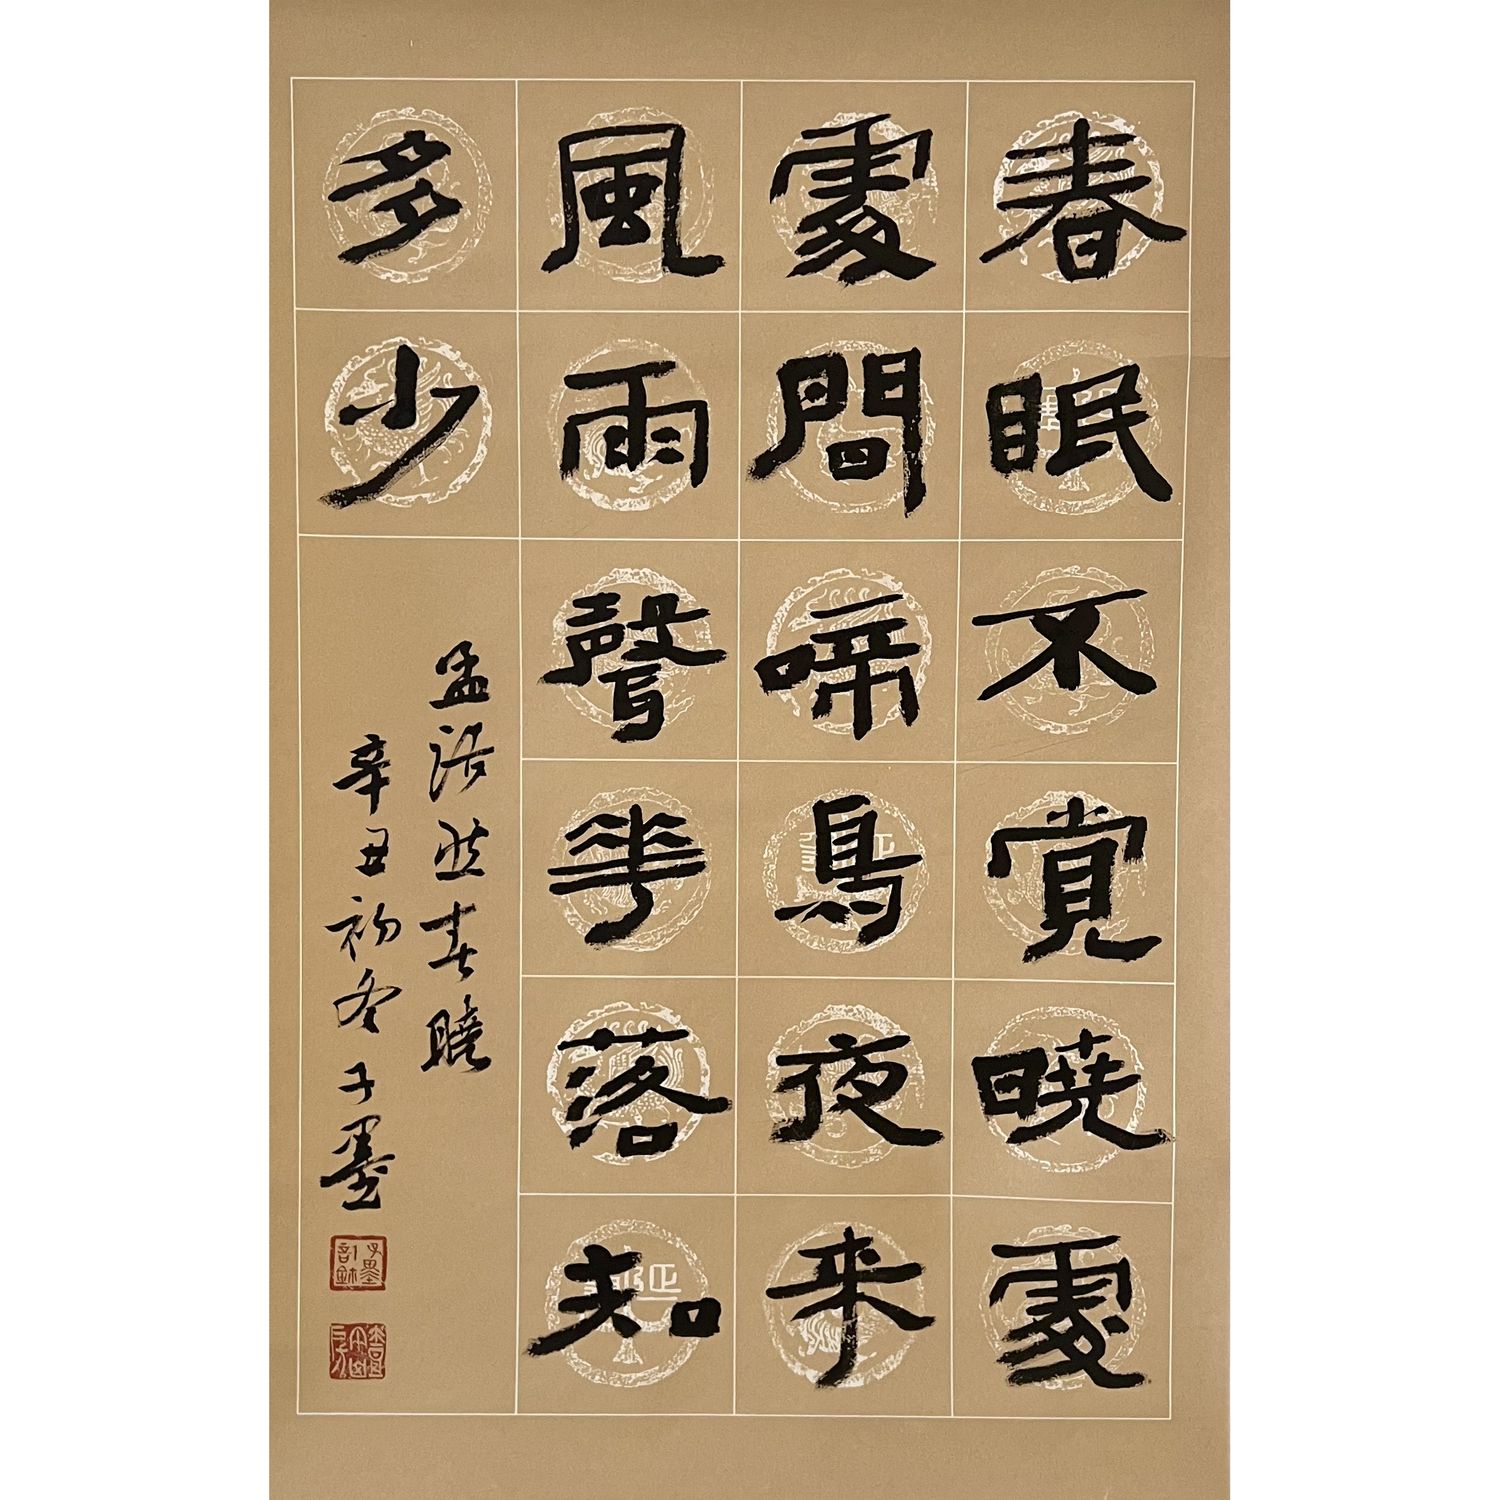 春眠不覺曉處
處間啼鳥夜来
風雨聲花落知
多少
孟浩然春曉
辛丑初冬子墨